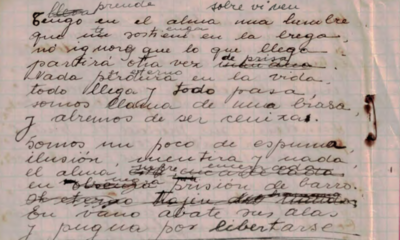 prende sobre viven
Tengo en el alma una lumbre
que sosteni en la brega,
no ignoro que lo que llega
partirá otra vez de prisa
nada eterno en la vida,
todo llega y todo pasa,
somos llama de una brasa
y abremos de ser cenizas.
Somos un poco de espuma,
ilusión, mentira y nada
el alma
en prisión de barro.
En vano abate sus alas
y pugna por libertarse